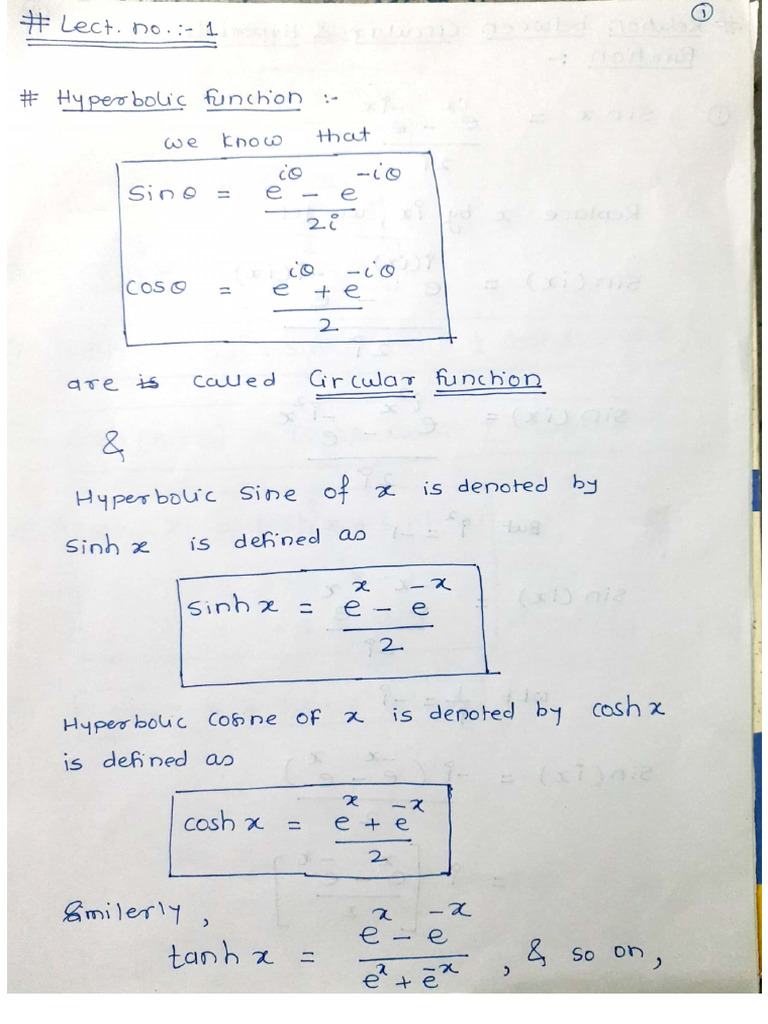 ①
# Lect. no. :- 1
# Hyperbolic function :-
we know that
sinθ = (e^{iθ} - e^{-iθ}) / 2i
cosθ = (e^{iθ} + e^{-iθ}) / 2
are is called Circular function
&
Hyperbolic sine of x is denoted by
sinh x is defined as
sinh x = (e^x - e^{-x}) / 2
Hyperbolic cosine of x is denoted by cosh x
is defined as
cosh x = (e^x + e^{-x}) / 2
Similerly,
tanh x = (e^x - e^{-x}) / (e^x + e^{-x}) , & so on,